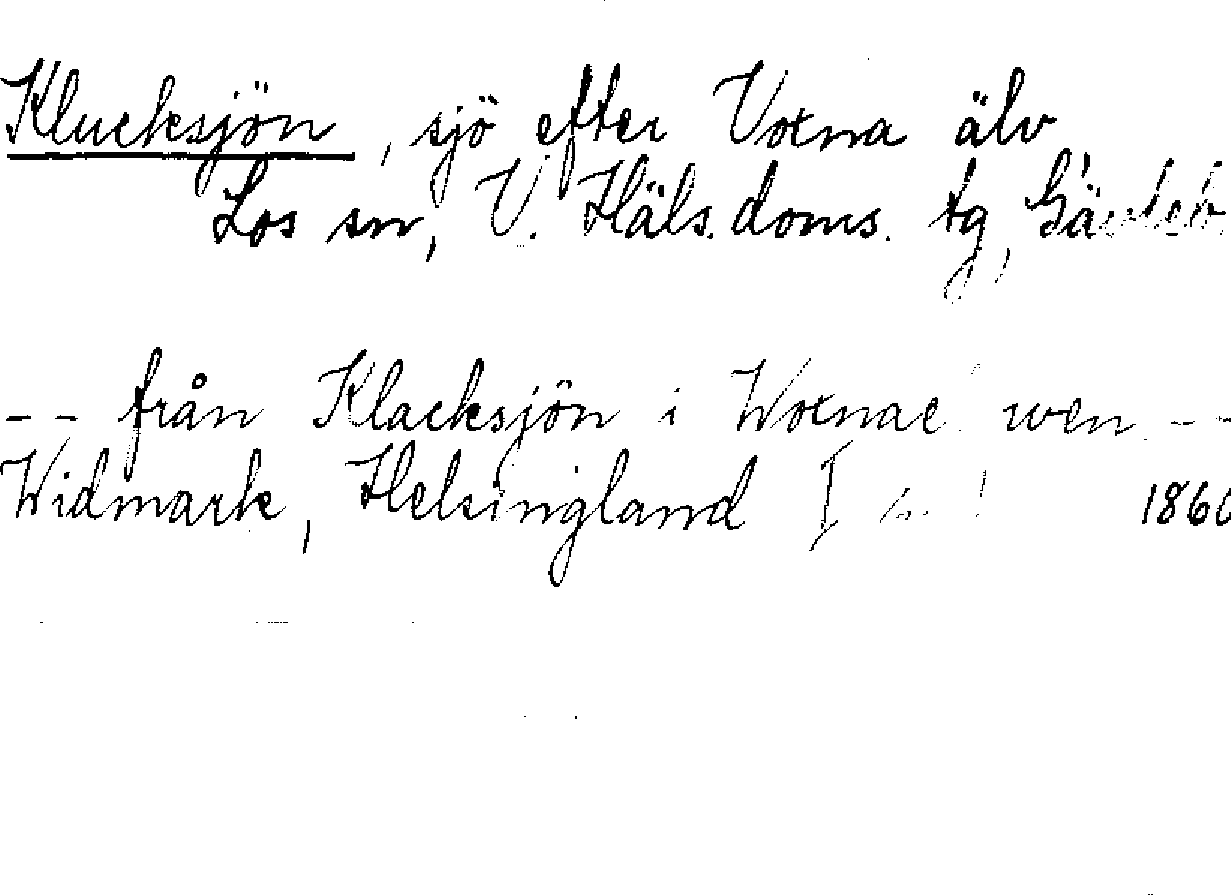 Klucksjön, sjö efter Voxna älv,
Los sn, V. Häls. doms. tg, Gävleb.
-- från Klacksjön i Woxnae wen --
Widmark, Helsingland I 1860